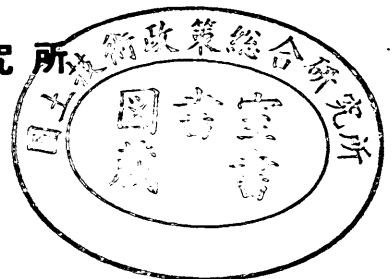 究所
国土技術政策総合研究所
圖書室
蔵書